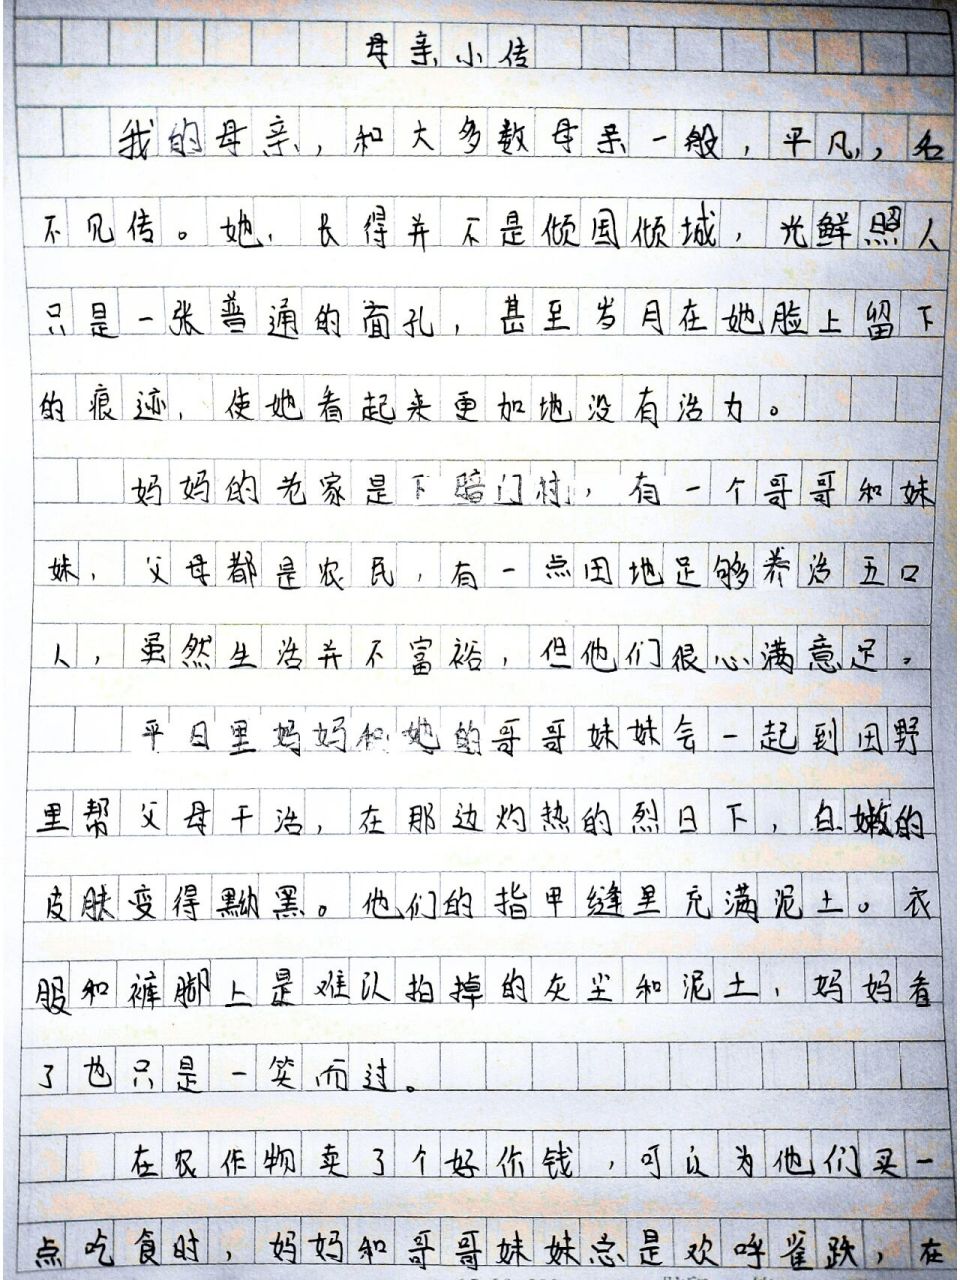 母亲小传
我的母亲，和大多数母亲一般，平凡，名
不见传。她，长得并不是倾国倾城，光鲜照人
只是一张普通的面孔，甚至岁月在她脸上留下
的痕迹，使她看起来更加地没有活力。
妈妈的老家是下暗门村，有一个哥哥和妹
妹，父母都是农民，有一点田地足够养活五口
人，虽然生活并不富裕，但他们很心满意足。
平日里妈妈和她的哥哥妹妹会一起到田野
里帮父母干活，在那边灼热的烈日下，白嫩的
皮肤变得黝黑。他们的指甲缝里充满泥土。衣
服和裤脚上是难以拍掉的灰尘和泥土，妈妈看
了也只是一笑而过。
在农作物卖了个好价钱，可以为他们买一
点吃食时，妈妈和哥哥妹妹总是欢呼雀跃，在